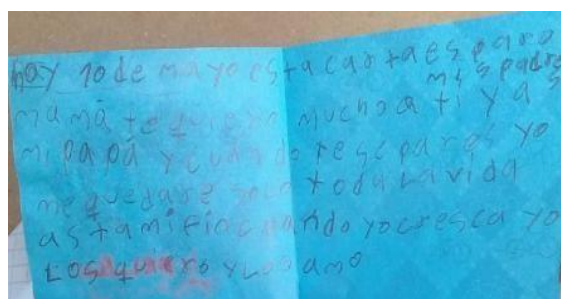 hoy 10 de mayo esta carta es para
mis padres
mamá te quiero mucho a ti y a
mi papá y cuando te separes yo
me quedare solo toda la vida
as ta mi fin cuando yo cresca yo
Los quiero y Los amo